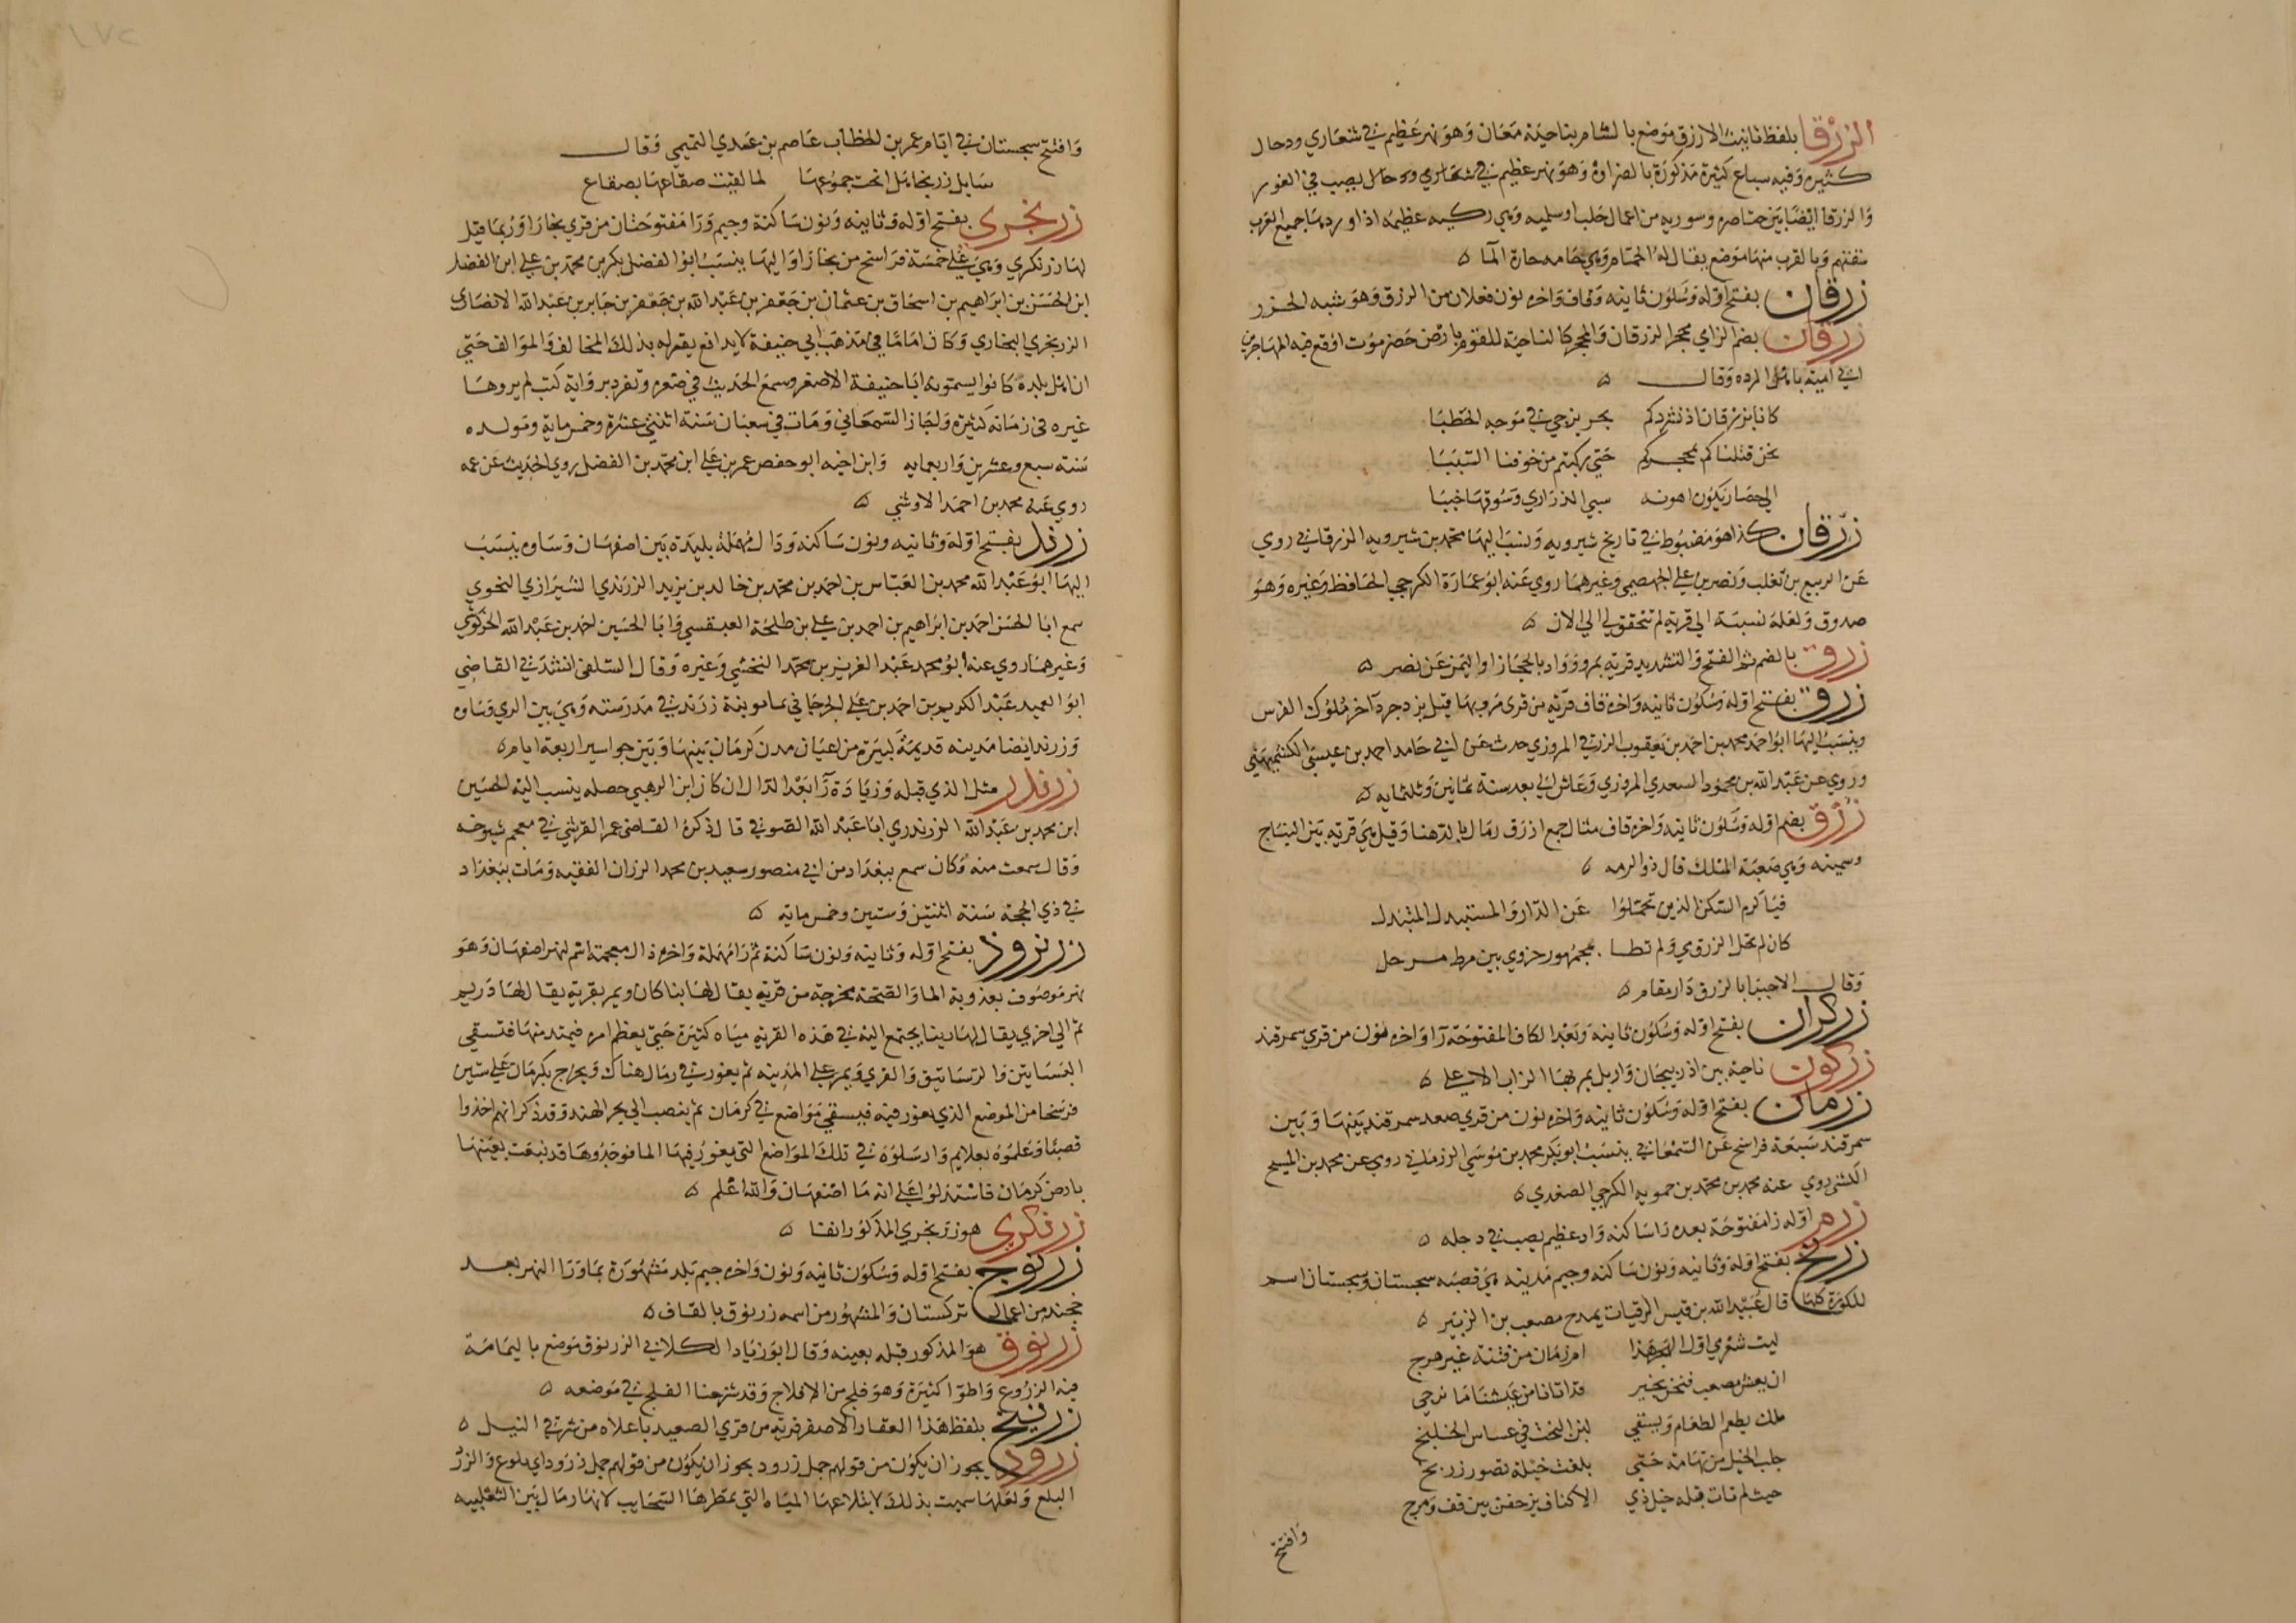 الزرقا بلفظ تانيث الازرق موضع بالشام بناحية معان وهو نهر عظيم في شعاري ودحال
كثيره وفيه سباع كثيرة مذكورة بالضراوة وهو نهر عظيم في شعاري ودحال يصب في الغور
والزرقا ايضا بين خناصره وسوريه من اعمال حلب او سلميه وهي ركيه عظيمه اذا وردها جميع العرب
كفتهم وبالقرب منها موضع يقال له الحمام وهي حامه حارة الما
زرقان بفتح اوله وسكون ثانيه وقاف واخره نون فعلان من الزرق وهو شبه الخزر
زرقان بضم الزاي محجر الزرقان والمحجر كالناحية للقوم بارض حضرموت اوقع فيه المهاجر بن
ابي امية باهل الرده وقال
كنا بزرقان اذ نشردكم بحر يزجي في موجه الحطبا
نحن قتلناكم بمحجركم حتي ركبتم من خوفنا السببا
الي حصار يكون اهونه سبي الذراري وسوقها خببا
زرقان كذا هو مضبوط في تاريخ شيرويه ونسب اليها محمد بن شيرويه الزرقاني روي
عن الربيع بن تغلب ونصر بن علي الجهضمي وغيرهما روي عنه ابو عمارة الكرجي الحافظ وغيره وهو
صدوق ولعله نسبة الي قرية لم تتحقق لي الي الان
زرق بالضم ثم الفتح والتشديد قرية بمرو وواد بالحجاز او اليمن عن نصر
زرق بفتح اوله وسكون ثانيه واخره قاف قرية من قري مرو بها قتل يزدجرد آخر ملوك الفرس
وينسب اليها ابو احمد محمد بن احمد بن يعقوب الزرقي المروزي حدث عن ابي حامد احمد بن عيسي الكشميهني
وروي عن عبد الله بن محمود السعدي المروزي وعاش الي بعد سنة ثمانين وثلثمايه
زرق بضم اوله وسكون ثانيه واخره قاف مثال جمع ازرق رمال بالدهنا وقيل هي قرية بين النباج
وسمينه وهي صعبة المسلك قال ذو الرمه
فيا كرم السكن الذين تحملوا عن الدار والمستبدل المتبدل
كان لم تحل الزرق ومي ولم تطا بجمهور حزوي بين مرط مرحل
وقال الا حبذا بالزرق دار مقام
زركران بفتح اوله وسكون ثانيه وبعد الكاف المفتوحة را واخره نون من قري سمرقند
زركون ناحية بين اذربيجان واربل يمر بها الزاب الاعلي
زرمان بفتح اوله وسكون ثانيه واخره نون من قري صغد سمرقند بينها وبين
سمرقند سبعة فراسخ عن السمعاني ينسب ابو بكر محمد بن موسي الزرماني روي عن محمد بن المسبح
الكشي روي عنه محمد بن محمد بن حمويه الكرجي الصغدي
زرم اوله زا مفتوحة بعده را ساكنه واد عظيم يصب في دجله
زرنج بفتح اوله وثانيه ونون ساكنه وجيم مدينه هي قصبه سجستان وسجستان اسم
للكورة كلها قال عبيد الله بن قيس الرقيات يمدح مصعب بن الزبير
ليت شعري اول الهرج هذا ام زمان من فتنة غير هرج
ان يعش مصعب فنحن بخير قد اتانا من عيشنا ما نرجي
ملك يطعم الطعام ويسقي لبن البخت في عساس الخلنج
جلب الخيل من تهامة حتي بلغت خيله قصور زرنج
حيث لم تات قبله خيل ذي الاكتاف يزحفن بين قف ومرج
وافتتح
وافتتح سجستان في ايام عمر بن الخطاب عاصم بن عمدي التميمي وقال
سايل زرنجا هل ابحت جموعها لما لقيت صقاعها بصقاع
زرنجري بفتح اوله وثانيه ونون ساكنة وجيم ورا مفتوحتان من قري بخارا وربما قيل
لها زرنكري وهي علي خمسة فراسخ من بخارا واليها ينسب ابو الفضل بكر بن محمد بن علي ابن الفضل
ابن الحسن بن ابراهيم بن اسحاق بن عثمان بن جعفر بن عبد الله بن جعفر بن جابر بن عبد الله الانصاري
الزرنجري البخاري وكان اماما في مذهب ابي حنيفة لا يدافع يقر له بذلك المخالف والموالف حتي
ان اهل بلده كانوا يسمونه ابا حنيفة الاصغر وسمع الحديث في صغره وتفرد برواية كتب لم يروها
غيره في زمانه كثيرة واجاز السمعاني ومات في شعبان سنة اثنتي عشرة وخمسماية ومولده
سنة سبع وعشرين واربعمايه وابن اخيه ابو حفص عمر بن علي ابن محمد بن الفضل روي الحديث عن عمه
روي عنه محمد بن احمد الاوشي
زرند بفتح اوله وثانيه ونون ساكنه ودال مهملة بليدة بين اصفهان وساوه ينسب
اليها ابو عبد الله محمد بن العباس بن احمد بن محمد بن خالد بن يزيد الزرندي الشيرازي النحوي
سمع ابا الحسن احمد بن ابراهيم بن احمد بن علي بن طلحة العبقسي وابا الحسين احمد بن عبد الله الخركوشي
وغيرهما روي عنه ابو محمد عبد العزيز بن محمد النخشبي وغيره وقال السلفي انشدني القاضي
ابو العميد عبد الكريم بن احمد بن علي الجرجاني بمامونية زرند في مدرسته وهي بين الري وساوه
وزرند ايضا مدينه قديمة كبيرة من اعيان مدن كرمان بينها وبين جواسير اربعة ايام
زرندر مثل الذي قبله وزيادة را بعد الدال ان كان ابن الزهبي حصله ينسب اليه الحسين
ابن محمد بن عبد الله الزرندري ابا عبد الله الصوفي قال ذكره القاضي عمر القرشي في معجم شيوخه
وقال سمعت منه وكان سمع ببغداد من ابي منصور سعيد بن محمد الرزاز الفقيه ومات ببغداد
في ذي الحجة سنة اثنتين وستين وخمسماية
زرنروذ بفتح اوله وثانيه ونون ساكنة ثم را مهملة واخره ذال معجمة اسم لنهر اصفهان وهو
نهر موصوف بعذوبة الما والصحة مخرجه من قرية يقال لها بناكان ويمر بقرية يقال لها دريم
ثم الي اخري يقال لها دينا يجتمع اليه في هذه القرية مياه كثيرة حتي يعظم امره فيمتد منها فتسقي
البساتين والرساتيق والقري ويمر علي المدينه ثم يغور في رمال هناك ويخرج بكرمان علي ستين
فرسخا من الموضع الذي يغور فيه فيسقي مواضع في كرمان ثم ينصب الي بحر الهند وقد ذكر انهم اخذوا
قصبا وعلموه بعلايم وارسلوه في تلك المواضع التي يغور فيها الما فوجدوها قد نبعت بعينها
بارض كرمان فاستدلوا علي انه ما اصفهان والله اعلم
زرنكري هو زرنجري المذكور انفا
زرنوج بفتح اوله وسكون ثانيه ونون واخره جيم بلد مشهورة بماورا النهر بعد
خجند من اعمال تركستان والمشهور من اسمه زرنوق بالقاف
زرنوق هو المذكور قبله بعينه وقال ابو زياد الكلابي الزرنوق موضع باليمامة
فيه الزروع واطوا كثيرة وهو فلج من الافلاج وقد شرحنا الفلج في موضعه
زرنيخ بلفظ هذا العقار الاصفر قرية من قري الصعيد باعلاه من شرقي النيل
زرود يجوز ان يكون من قولهم جمل زرود يجوز ان يكون من قولهم جمل زرود اي بلوع والزرد
البلع ولعلها سميت بذلك لابتلاعها المياه التي تمطرها السحايب لانها رمال بين الثعلبيه